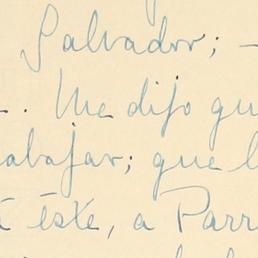 Salvador; –
. Me dijo qu
abajar; que l
éste, a Parr